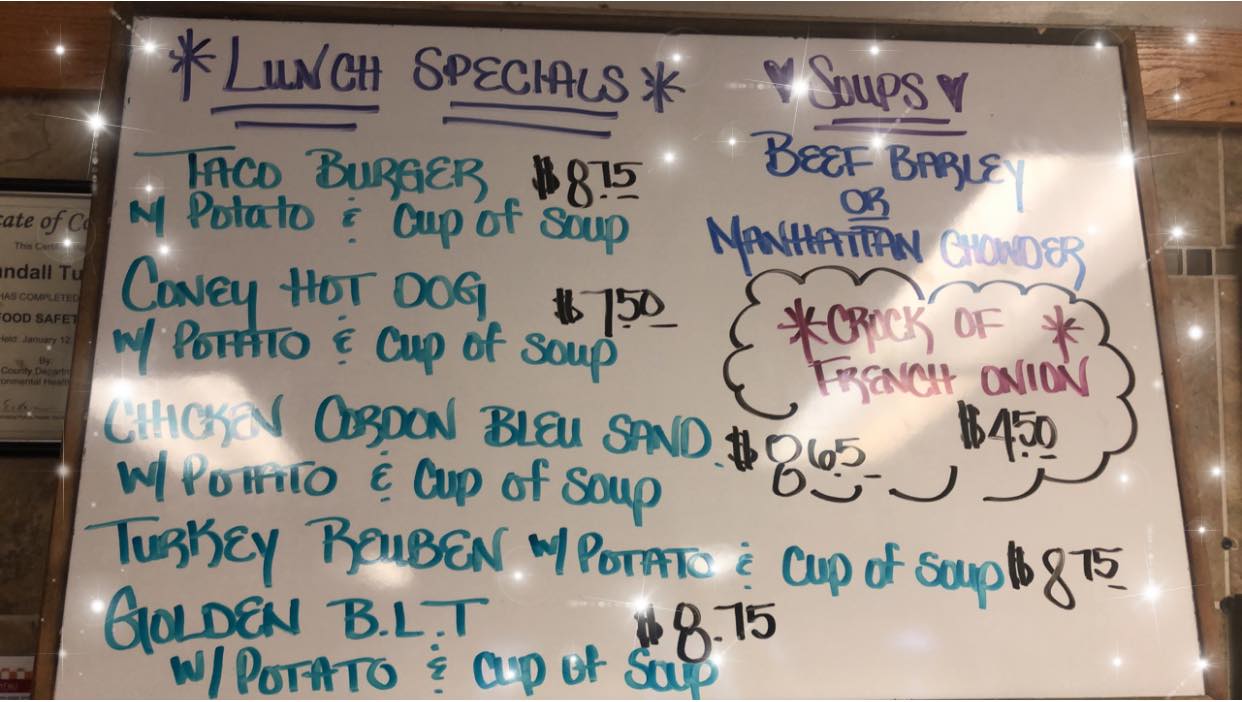 * LUNCH SPECIALS *
TACO BURGER $8.75
w/ Potato & Cup of Soup
CONEY HOT DOG $7.50
w/ POTATO & Cup of Soup
CHICKEN CORDON BLEU SAND. $8.65
w/ POTATO & Cup of Soup
TURKEY REUBEN w/ POTATO & Cup of Soup $8.75
GOLDEN B.L.T $8.75
w/ POTATO & Cup of Soup
♥ SOUPS ♥
BEEF BARLEY
OR
MANHATTAN CHOWDER
* CROCK OF *
FRENCH ONION
$4.50
cate of Co
This Certif
ndall Tu
HAS COMPLETED
OOD SAFET
Held: January 12,
By:
County Departm
ronmental Health